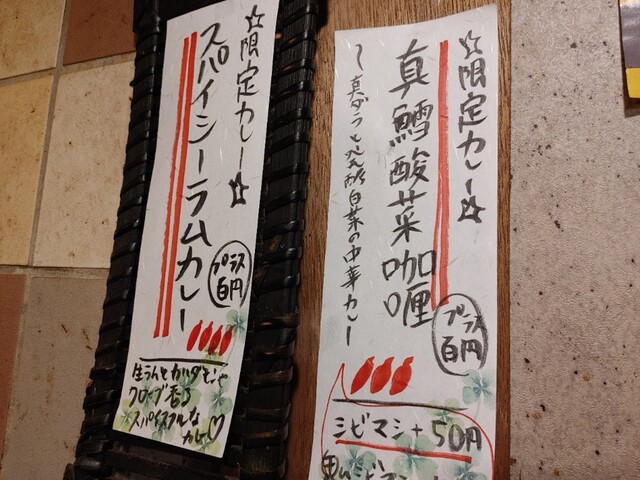 ☆限定カレー☆
真鱈酸菜咖喱
〜真ダラと発酵白菜の中華カレー
プラス
百円
シビマシ+50円
☆限定カレー☆
スパイシーラムカレー
プラス
百円
生ラムとカルダモンや
クローブ香る
スパイスフルな
カレー♡